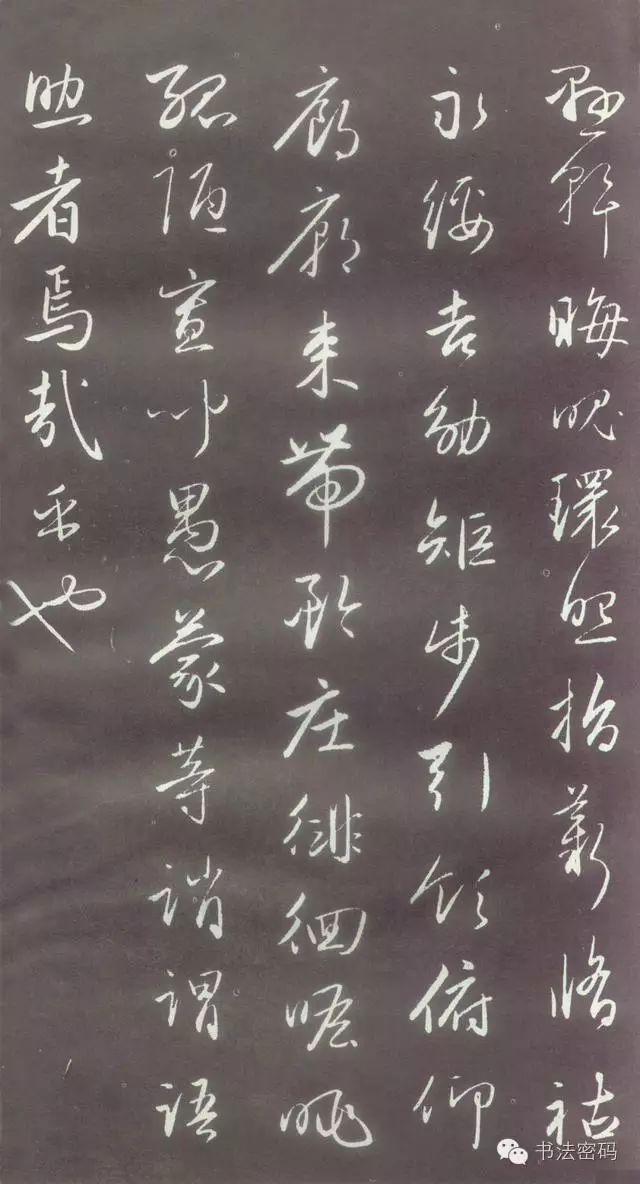 懸斡晦魄環照指薪脩祜
永綏吉劭矩步引領俯仰
廊廟束帶矜庄徘徊瞻眺
孤陋寡聞愚蒙等誚謂語
助者焉哉乎也
书法密码